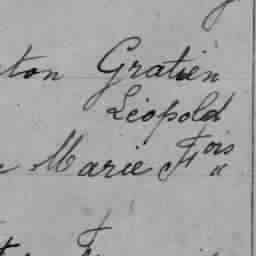 ton Gratien
Léopold
Marie Fois "